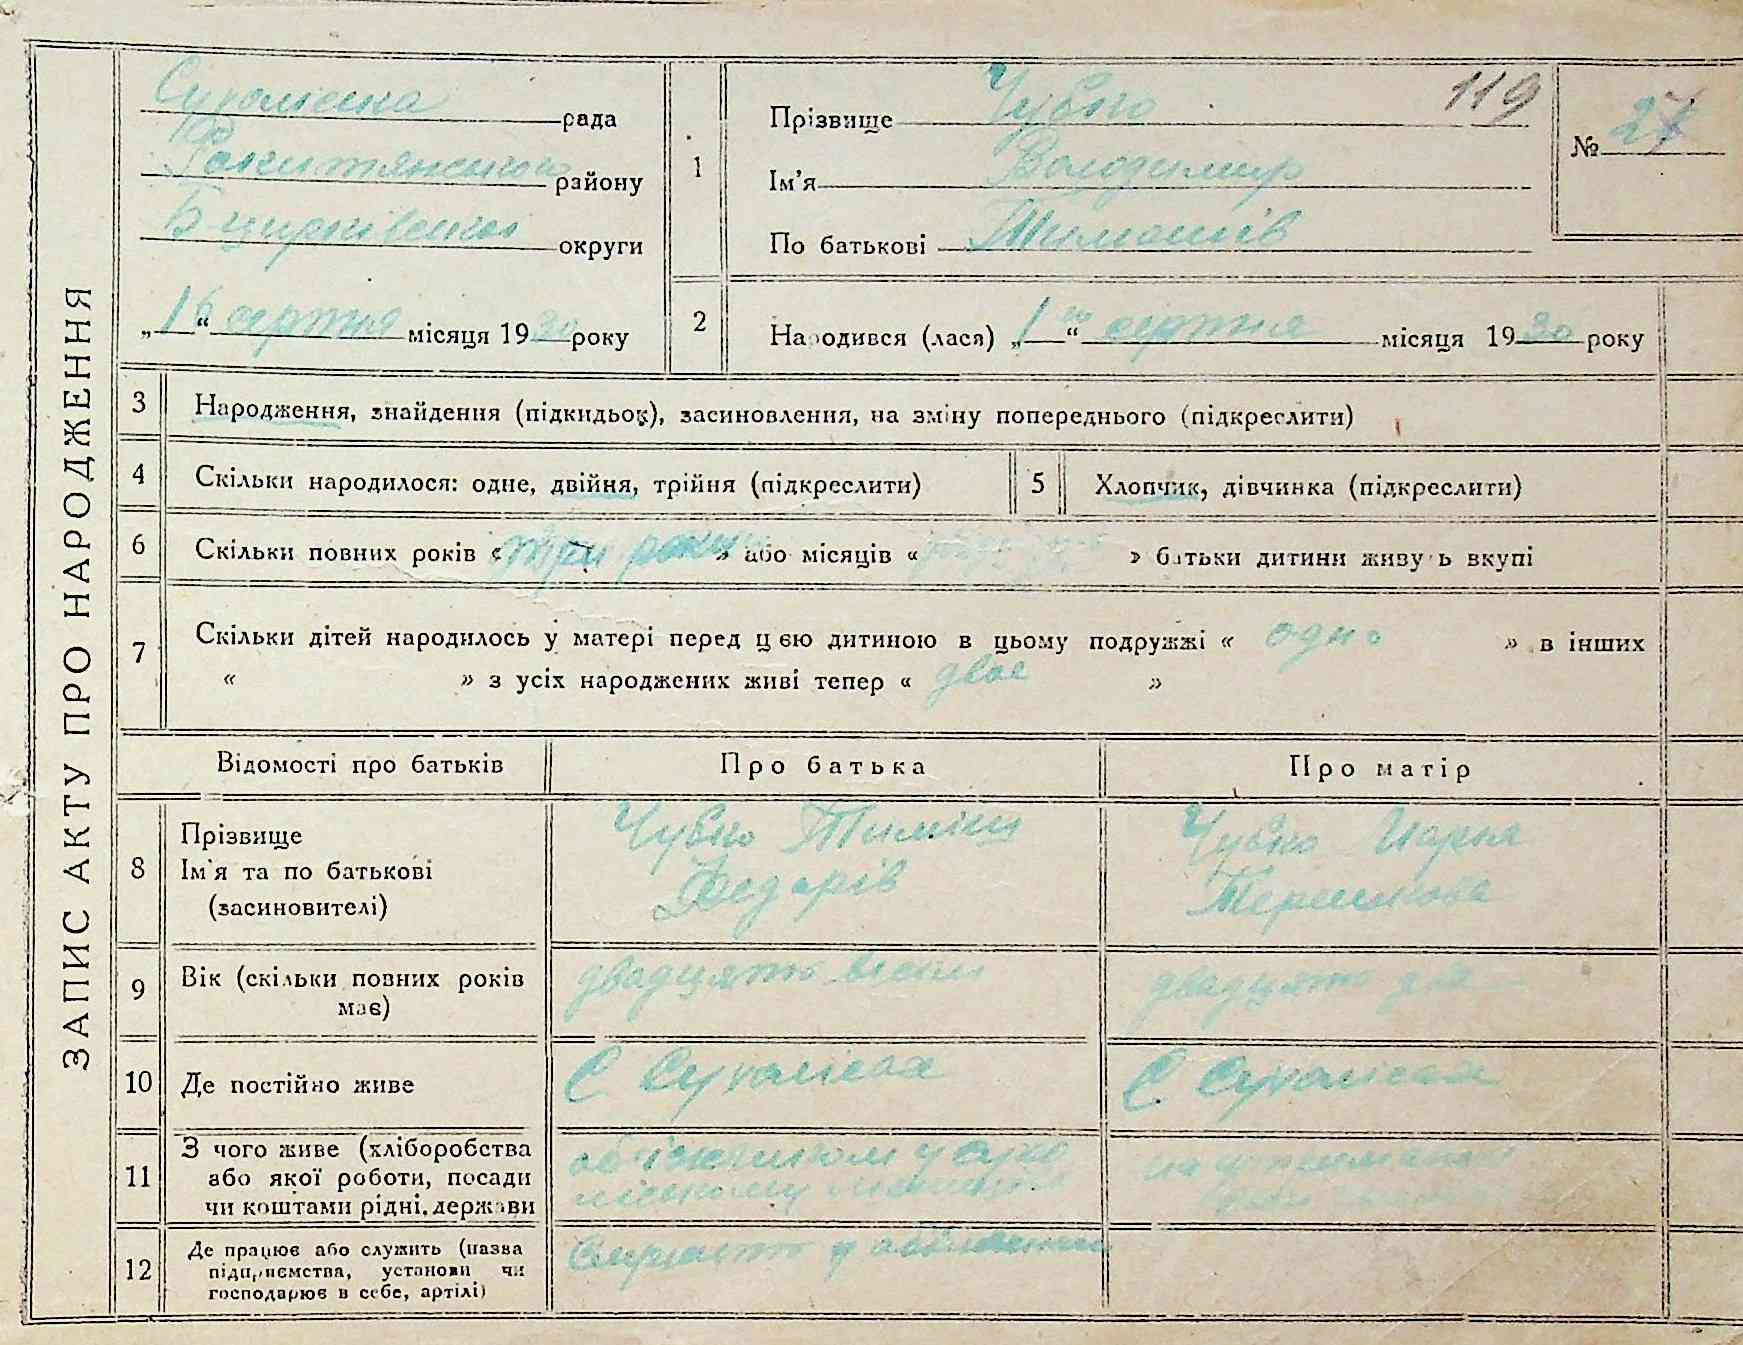 ЗАПИС АКТУ ПРО НАРОДЖЕННЯ
рада
Рокитянського району
Б церківської округи
„16“ серпня місяця 1930 року
1
Прізвище Чубко
Ім'я Володимир
По батькові Тимошів
119
№ 27
2
Народився (лася) „1го“ серпня місяця 1930 року
3 Народження, знайдення (підкидьок), засиновлення, на зміну попереднього (підкреслити)
4 Скільки народилося: одне, двійня, трійня (підкреслити)
5 Хлопчик, дівчинка (підкреслити)
6 Скільки повних років « три роки » або місяців « » батьки дитини живуть вкупі
7 Скільки дітей народилось у матері перед цією дитиною в цьому подружжі « одно » в інших
« » з усіх народжених живі тепер « двоє »
Відомості про батьків
Про батька
Про матір
8
Прізвище
Ім'я та по батькові
(засиновителі)
Чубко Тиміш
Федорів
Чубко
9
Вік (скільки повних років
має)
двадцять вісім
двадцять два
10 Де постійно живе
С Сухолісах
С Сухолісах
11
З чого живе (хліборобства
або якої роботи, посади
чи коштами рідні, держави
об'їжчиком у Сухо
ліському
на утриманні
12
Де працює або служить (назва
підприємства, установи чи
господарює в себе, артілі)